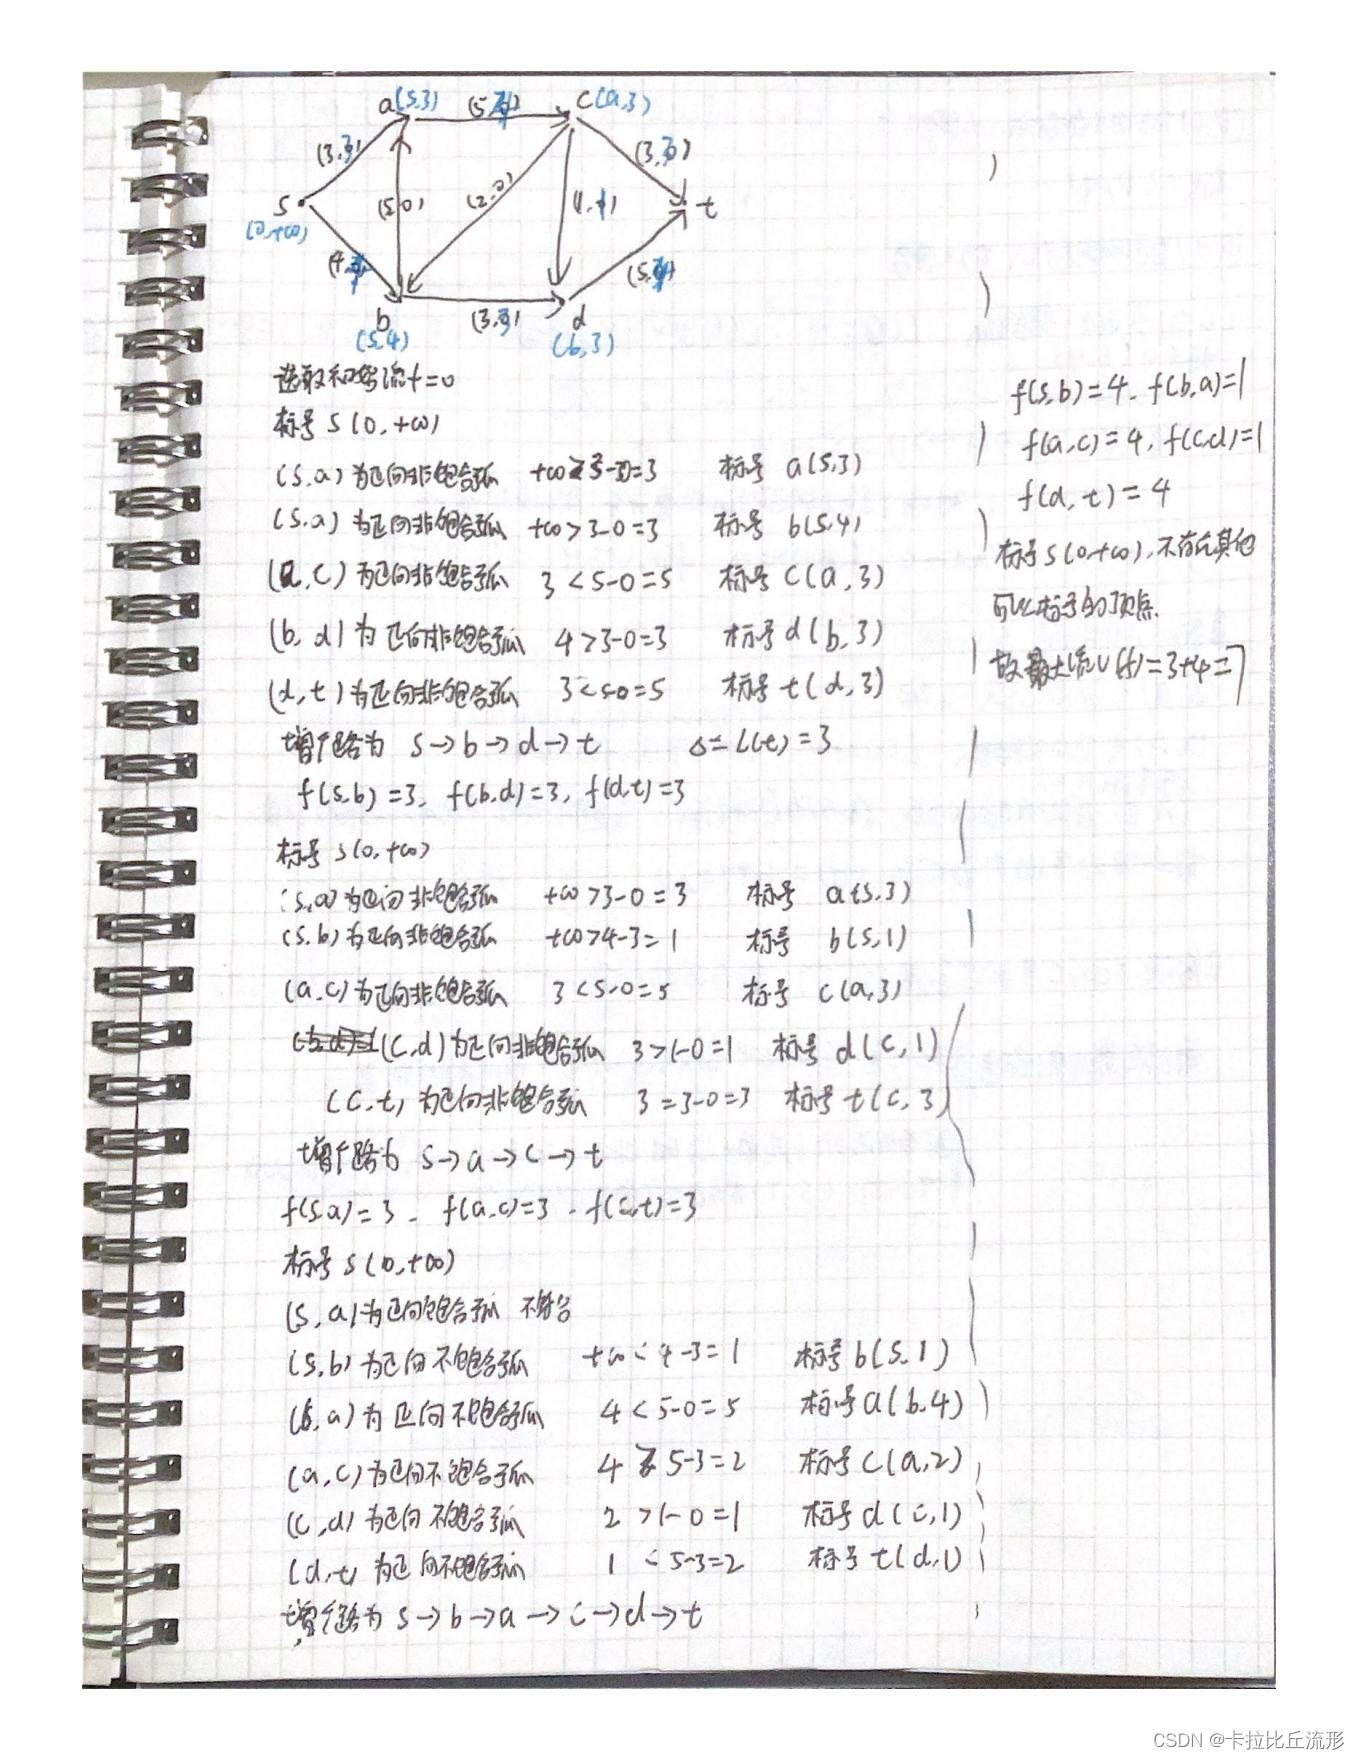 a(s,3)
(5,4)
c(a,3)
(3,3)
(3,3)
s
(0,+∞)
(5,0)
(2,0)
(1,1)
t
(4,4)
(5,4)
b
(3,3)
d
(s,4)
(b,3)
选取初始流f=0
标号 s(0,+∞)
(s,a)为正向非饱合弧 +∞≥3-0=3 标号 a(s,3)
(s,a)为正向非饱合弧 +∞>3-0=3 标号 b(s,4)
(a,c)为正向非饱合弧 3<5-0=5 标号 c(a,3)
(b,d)为正向非饱合弧 4>3-0=3 标号 d(b,3)
(d,t)为正向非饱合弧 3<5-0=5 标号 t(d,3)
增广路为 s→b→d→t δ=L(t)=3
f(s,b)=3, f(b,d)=3, f(d,t)=3
标号 s(0,+∞)
(s,a)为正向非饱合弧 +∞>3-0=3 标号 a(s,3)
(s,b)为正向非饱合弧 +∞>4-3=1 标号 b(s,1)
(a,c)为正向非饱合弧 3<5-0=5 标号 c(a,3)
(c,d)为正向非饱合弧 3>1-0=1 标号 d(c,1)
(c,t)为正向非饱合弧 3=3-0=3 标号 t(c,3)
增广路为 s→a→c→t
f(s,a)=3, f(a,c)=3, f(c,t)=3
标号 s(0,+∞)
(s,a)为正向饱合弧 不符合
(s,b)为正向不饱合弧 +∞<4-3=1 标号 b(s,1)
(b,a)为正向不饱合弧 4<5-0=5 标号 a(b,4)
(a,c)为正向不饱合弧 4>5-3=2 标号 c(a,2)
(c,d)为正向不饱合弧 2>1-0=1 标号 d(c,1)
(d,t)为正向不饱合弧 1<5-3=2 标号 t(d,1)
增广路为 s→b→a→c→d→t
f(s,b)=4, f(b,a)=1
f(a,c)=4, f(c,d)=1
f(d,t)=4
标号 s(0,+∞),不存在其他
可以标号的顶点.
故最大流V(f)=3+4=7
CSDN @卡拉比丘流形